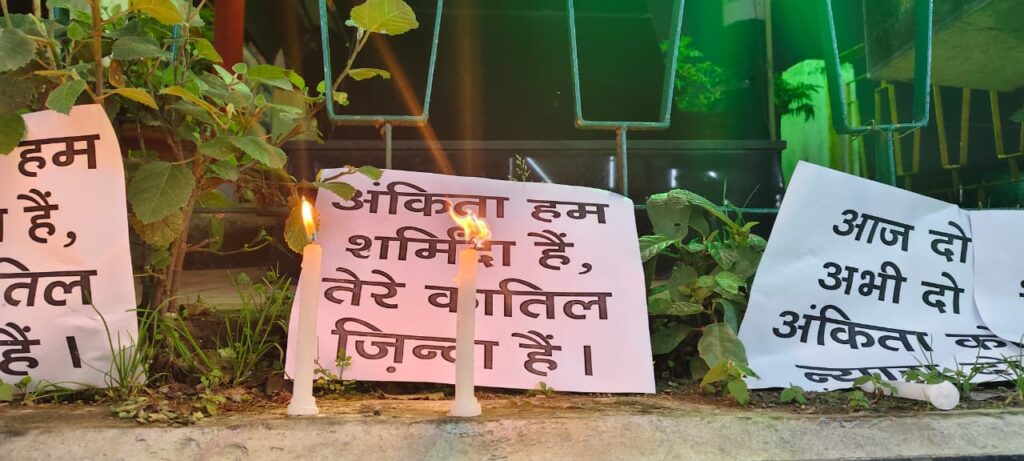 हम
हैं,
तिल
हैं ।
अंकिता हम
शर्मिंदा हैं,
तेरे कातिल
ज़िन्दा हैं ।
आज दो
अभी दो
अंकिता को